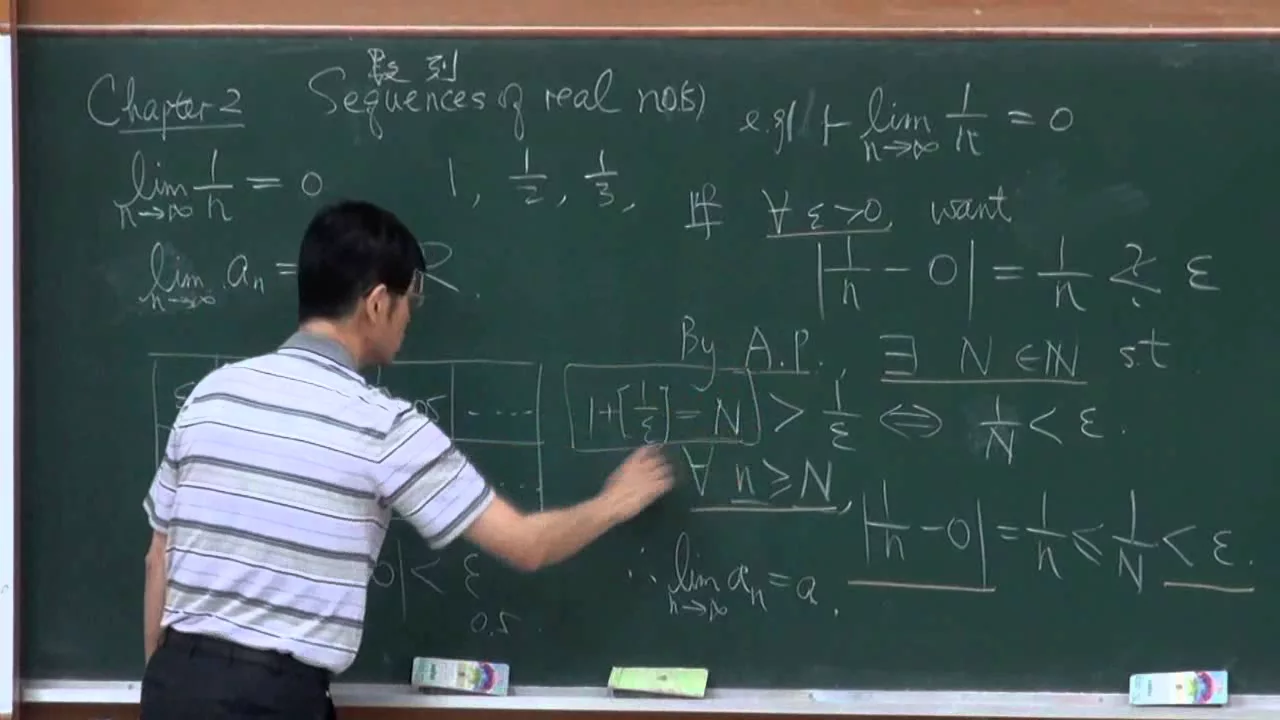 數列
Chapter 2 Sequences of real no(s)
lim n→∞ 1/n = 0
1, 1/2, 1/3,
lim n→∞ aₙ = R.
05 .....
0| < ε
0.5
e.g.1 ⊢ lim n→∞ 1/n = 0
pf ∀ ε > 0, want
|1/n − 0| = 1/n <? ε
By A.P., ∃ N ∈ ℕ s.t
1+[1/ε] = N > 1/ε ⇔ 1/N < ε.
∀ n ≥ N, |1/n − 0| = 1/n ≤ 1/N < ε.
∴ lim n→∞ aₙ = a.